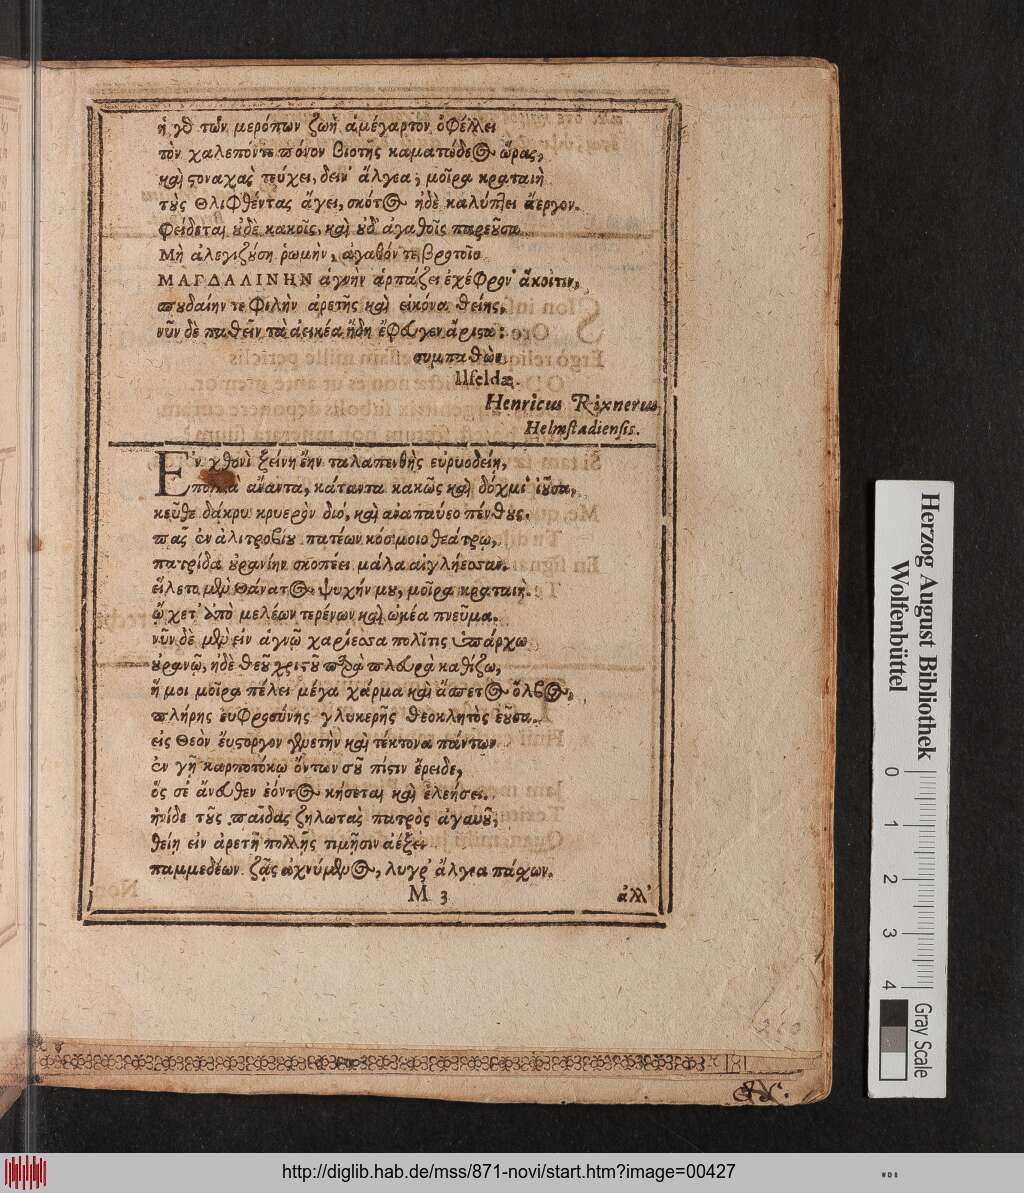 ἡ γδ τῶν μερόπων ζωὴ ἀμέγαρτον ὀφέλλει
τὸν χαλεπόντε πόνον βιοτῆς καματώδεος ὥρας,
καὶ στοναχὰς τεύχει, δείν' ἄλγεα, μοῖρα κραταιὴ
τοὺς θλιφθέντας ἄγει, σκότος ἠδὲ καλύπτει ἄεργον.
Φείδεται οὐδὲ κακοῖς, καὶ οὐδ' ἀγαθοῖς παρεοῦσα
Μὴ ἀλεγιζούση ῥωμὴν, ἀγαθόν τε βροτοῖο
ΜΑΓΔΑΛΙΝΗΝ ἁγνὴν ἁρπάζει ἐχέφρον' ἄκοιτιν,
σπουδαίην τε φιλὴν ἀρετῆς καὶ εἰκόνα θείης,
νῦν δὲ παθεῖν τὰ ἀεικέα ἤδη ἔφευγεν ἄριστα:
συμπαθῶν
Ilfeldæ.
Henricus Rixnerus
Helmstadiensis.
Ἐν χθονὶ ξείνη ἔην ταλαπειθὴς εὐρυοδείη,
πολλὰ ἄναντα, κάταντα κακῶς καὶ δόχμι' ἰοῦσα,
κεῦθε δάκρυ κρυερὸν διό, καὶ ἀναπαύεο πένθους.
πᾶς ἐν ἀλιτροβίου πατέων κόσμοιο θεάτρῳ,
πατρίδα οὐρανίην σκοπέει μάλα αἰγλήεσσαν.
εἵλετο μὲν θάνατος ψυχήν μου, μοῖρα κραταιή.
ᾤχετ' ἀπὸ μελέων τερένων καὶ ὠκέα πνεῦμα.
νῦν δὲ μὲν εἰν ἁγνῷ χαρίεσσα πολῖτις ὑπάρχω
οὐρανῷ, ἠδὲ θεοῦ χριστοῦ παρὰ πλευρὰ καθίζω,
ἥ μοι μοῖρα πέλει μέγα χάρμα καὶ ἄσπετος ὄλβος,
πλήρης εὐφροσύνης γλυκερῆς θεοκλητὸς ἐοῦσα.
εἰς Θεὸν εὔστοργον γενετὴν καὶ τέκτονα πάντων
ἐν γῆ καρποτόκῳ ὄντων σοῦ πίστιν ἔρειδε,
ὅς σέ ἄνευθεν ἐόντος κήσεται καὶ ἐλεήσει.
ἠνίδε τοὺς παῖδας ζηλωτὰς πατρὸς ἀγαυοῦ,
θείη εἰν ἀρετῆ πολλῆς τιμῇσιν ἀέξει
παμμεδέων. ζᾷς ἀχνύμενος, λυγρ' ἄλγεα πάσχων.
M 3
ἀλλ'
Herzog August Bibliothek
Wolfenbüttel
0 1 2 3 4
Gray Scale
http://diglib.hab.de/mss/871-novi/start.htm?image=00427